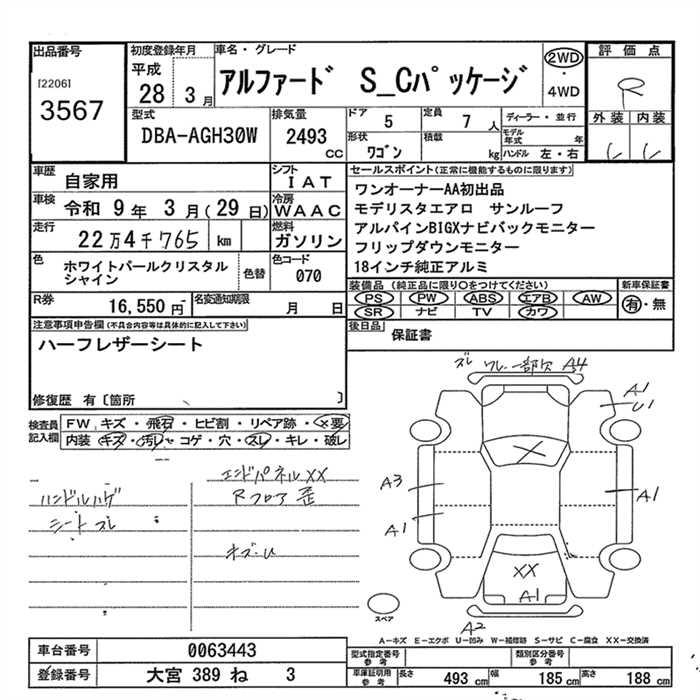 出品番号
[2206]
3567
初度登録年月
平成
28 3月
車名・グレード
アルファード S_Cパッケージ
2WD
・
4WD
評価点
R
外装 内装
型式
DBA-AGH30W
排気量
2493
CC
ドア
5
定員
7 人
形状
ワゴン
積載
kg
ディーラー・並行
モデル年式 年
ハンドル 左・右
車歴
自家用
シフト
IAT
車検
令和 9年 3月(29日)
冷房
WAAC
走行
22万4千765 km
燃料
ガソリン
色
ホワイトパールクリスタル
シャイン
色替
色コード
070
R券
16,550円
名変通知期限
月 日
セールスポイント(正常に機能するものに限ります)
ワンオーナーAA初出品
モデリスタエアロ サンルーフ
アルパインBIGXナビバックモニター
フリップダウンモニター
18インチ純正アルミ
装備品(純正品に限り○をつけてください)
PS PW ABS エアB AW
SR ナビ TV カワ
新車保証書
有・無
後日品
保証書
注意事項申告欄(不具合内容等は具体的に記入して下さい)
ハーフレザーシート
修復歴 有〔箇所 〕
検査員
記入欄
FW キズ・飛石・ヒビ割・リペア跡・×要
内装 キズ・汚レ・コゲ・穴・スレ・キレ・破レ
ハンドルハゲ
シートスレ
エンドパネルXX
Rフロア歪
キズ・U
ズレ ワレ 一部欠 A4
A1
U1
X
A3
A1
A1
XX
A1
A2
スペア
A-キズ E-エクボ U-凹み W-補修跡 S-サビ C-腐食 XX-交換済
車台番号
0063443
登録番号
大宮 389 ね 3
型式指定番号
参考
類別区分番号
参考
車庫証明用
参考
長さ 493cm 幅 185cm 高さ 188cm